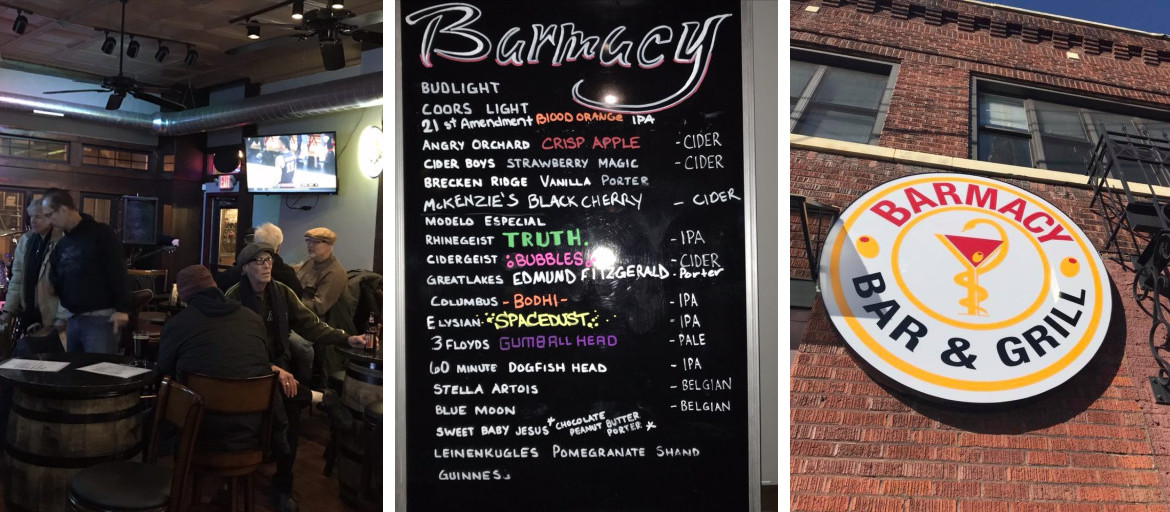 Barmacy
BUDLIGHT
COORS LIGHT
21st Amendment BLOOD ORANGE IPA
ANGRY ORCHARD CRISP APPLE - CIDER
CIDER BOYS STRAWBERRY MAGIC - CIDER
BRECKEN RIDGE VANILLA PORTER
McKENZIE'S BLACK CHERRY - CIDER
MODELO ESPECIAL
RHINEGEIST TRUTH. - IPA
CIDERGEIST BUBBLES - CIDER
GREATLAKES EDMUND FITZGERALD - Porter
COLUMBUS - BODHI - - IPA
ELYSIAN SPACEDUST - IPA
3 FLOYDS GUMBALL HEAD - PALE
60 MINUTE DOGFISH HEAD - IPA
STELLA ARTOIS - BELGIAN
BLUE MOON - BELGIAN
SWEET BABY JESUS * CHOCOLATE PEANUT BUTTER PORTER *
LEINENKUGLES POMEGRANATE SHAND
GUINNESS
BARMACY
BAR & GRILL